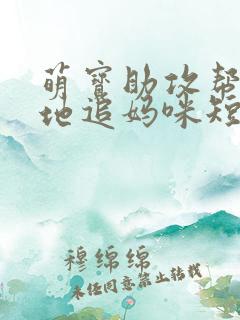 萌宝助攻帮
地追妈咪短
穆绵绵
未经同意禁止转载